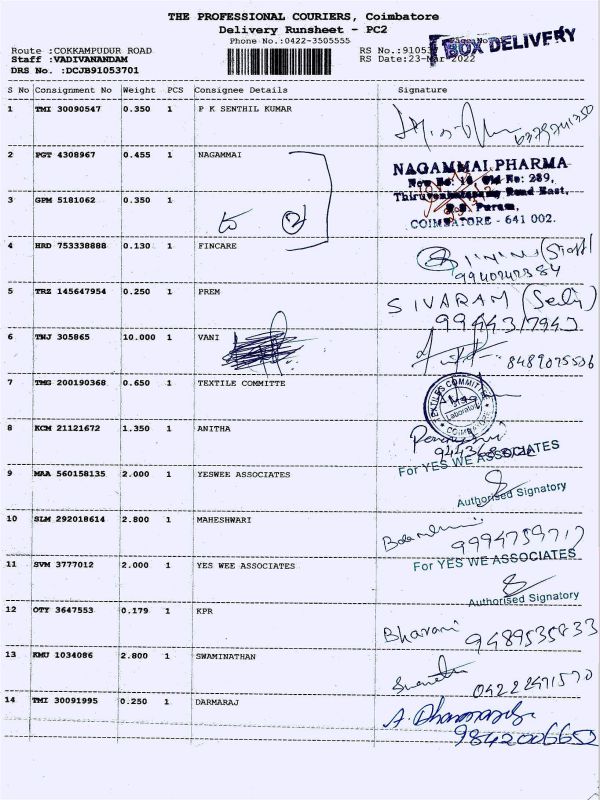 THE PROFESSIONAL COURIERS, Coimbatore
Delivery Runsheet - PC2
Phone No.:0422-3505555
BOX DELIVERY
Route :COKKAMPUDUR ROAD
RS No.:91053
Staff :VADIVANANDAM
RS Date:23-Mar-2022
DRS No. :DCJB91053701
S No Consignment No Weight PCS Consignee Details Signature
1 TMI 30090547 0.350 1 P K SENTHIL KUMAR
6379741350
2 PGT 4308967 0.455 1 NAGAMMAI
NAGAMMAI PHARMA
New No: 16, Old No: 289,
Thiruvenkatasamy Road East,
R.S. Puram,
COIMBATORE - 641 002.
3 GPM 5181062 0.350 1
to
4 HRD 753338888 0.130 1 FINCARE
(Staff)
9940242384
5 TRZ 145647954 0.250 1 PREM
SIVARAM (Self)
9944317942
6 TNJ 305865 10.000 1 VANI
8489075506
7 TMG 200190368 0.650 1 TEXTILE COMMITTE
TEXTILES COMMITTEE
Laboratory
COIMBATORE
8 KCM 21121672 1.350 1 ANITHA
For YES WE ASSOCIATES
9 MAA 560158135 2.000 1 YESWEE ASSOCIATES
Authorised Signatory
10 SLM 292018614 2.800 1 MAHESHWARI
9994759717
11 SVM 3777012 2.000 1 YES WEE ASSOCIATES
For YES WE ASSOCIATES
Authorised Signatory
12 OTY 3647553 0.179 1 KPR
Bharani 9489535833
13 KMU 1034086 2.800 1 SWAMINATHAN
04222471570
14 TMI 30091995 0.250 1 DARMARAJ
A. Dhanaraj
9842006652